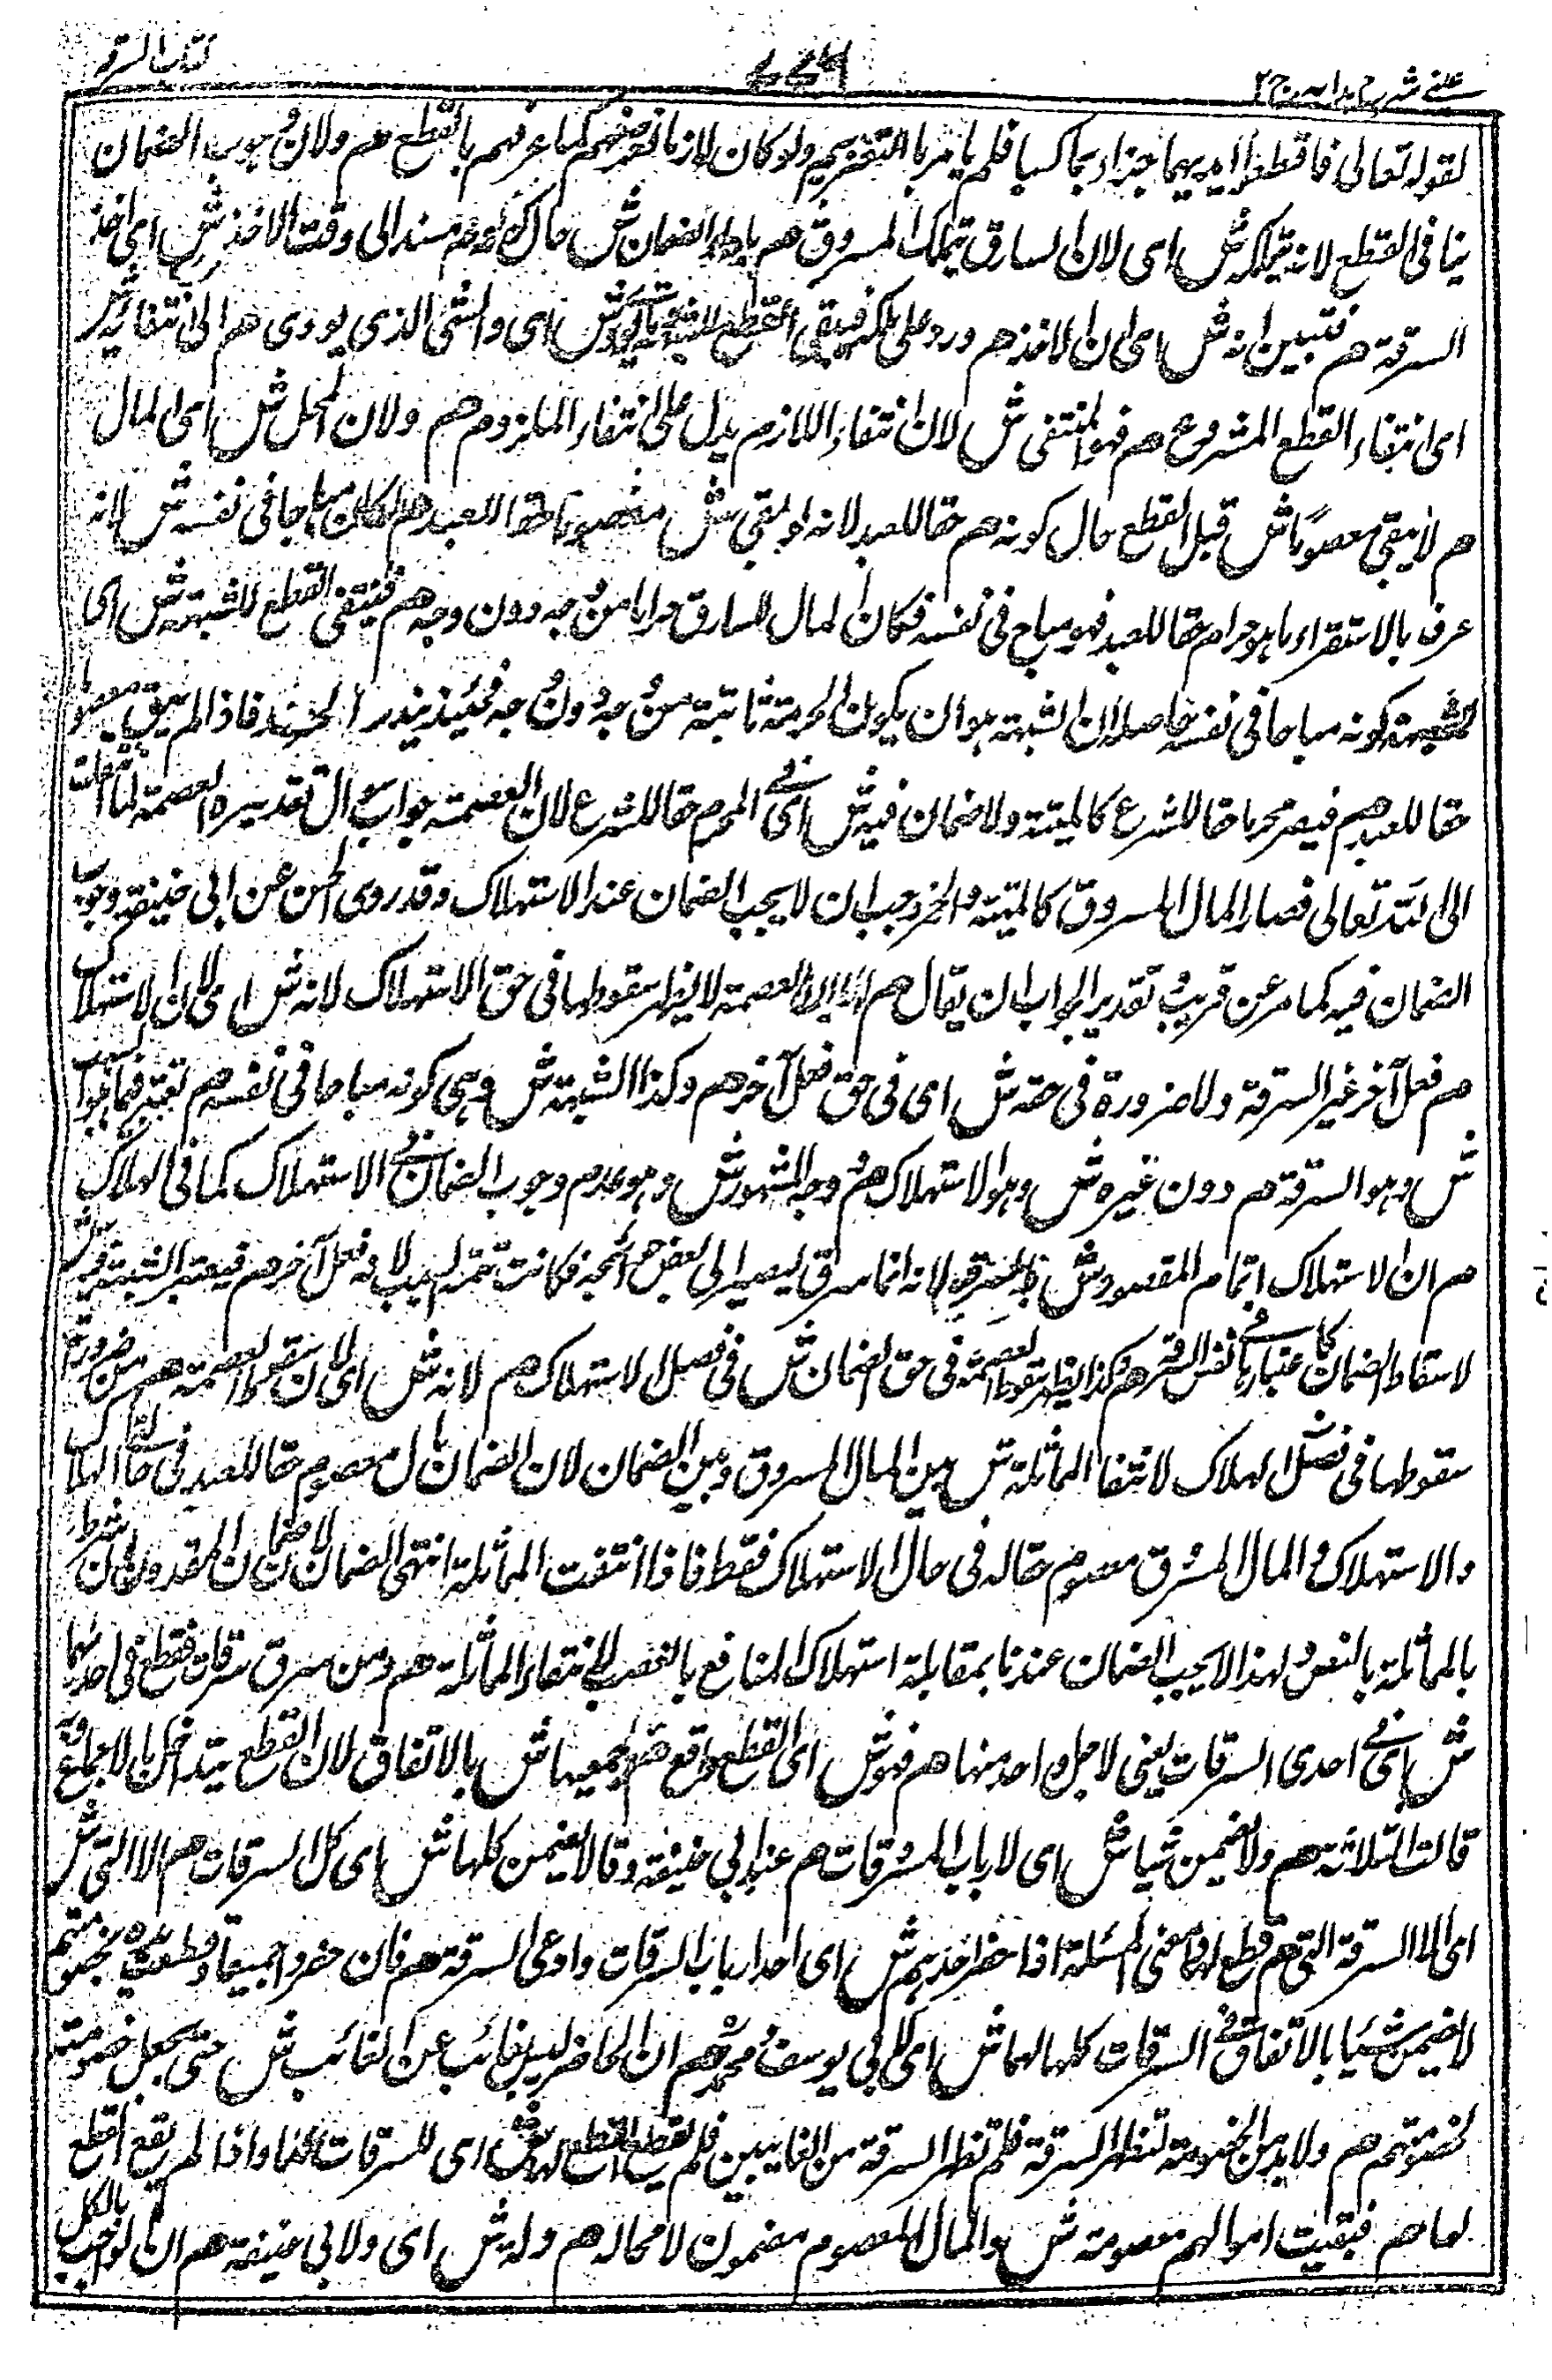 عینی شرح ہدایہ ج ٢ ٦٧٧ کتاب السرقة
لقوله تعالى فاقطعوا ايديهما جزاء بما كسبا فلم يامر بالتغريم ولو كان لازما لعرفهم كما عرفهم بالقطع هم ولان وجوب الضمان
ينافى القطع لانه يتملكه ش اى لان السارق يتملك المسروق هم باداء الضمان ش حال كونه هم مستندا الى وقت الاخذ ش اى اخذ
السرقة هم فتبين انه ش اى ان الاخذ هم ورد على ملكه فينتفى القطع للشبهة وما يؤدى ش اى والشئ الذى يودى هم الى انتفائه ش
اى انتفاء القطع المشروع هم فهو المنتفى ش لان انتفاء اللازم يدل على انتفاء الملزوم هم ولان المحل ش اى المال
هم لا يبقى معصوما ش قبل القطع حال كونه هم حقا للعبد لانه لو بقى ش معصوما حقا للعبد هم لكان مباحا فى نفسه ش لانه
عرف بالاستقراء ما هو حرام حقا للعبد فهو مباح فى نفسه فكان المال للسارق حراما من وجه دون وجه هم فينتفى القطع للشبهة ش اى
لشبهة كونه مباحا فى نفسه حاصلا ان الشبهة هو ان يكون الحرمة ثابتة من وجه دون وجه فحينئذ يندرئ الحد فاذا لم يبق معصوما
حقا للعبد هم فيصير محرما حقا للشرع كالميتة ولا ضمان فيه ش اى فى المحرم حقا للشرع لان العصمة جواب سوال تقديره العصمة لما انتقلت
الى الله تعالى فصار المال المسروق كالميتة والخمر وجب ان لا يجب الضمان عند الاستهلاك وقد روى الحسن عن ابى حنيفة وجوب
الضمان فيه كما مر عن قريب تقدير الجواب ان يقال هم الا ان العصمة لا يظهر سقوطها فى حق الاستهلاك لانه ش اى لان الاستهلاك
هم فعل آخر غير السرقة ولا ضرورة فى حقه ش اى فى حق فعل آخر هم وكذا الشبهة ش وهى كونه مباحا فى نفسه هم تعتبر فيما هو السبب
ش وهو السرقة هم دون غيره ش وهو الاستهلاك هم وجه المشهور ش وهو عدم وجوب الضمان فى الاستهلاك كما فى الهلاك
هم ان الاستهلاك اتمام المقصود ش لانه انما سرق ليصير الى بعض حوائجه فكانت تتمة السبب لا فعل آخر هم فيعتبر الشبهة فيه ش
لاسقاط الضمان كاعتبارها فى نفس السرقة هم وكذا يظهر سقوط العصمة فى حق الضمان ش فى فصل الاستهلاك هم لانه ش اى لان سقوط العصمة هم من ضرورة
سقوطها فى فصل الهلاك لانتفاء المماثلة ش بين المال المسروق وبين الضمان لان الضمان مال معصوم حقا للعبد فى حالة الهلاك
والاستهلاك والمال المسروق معصوم حقا له فى حال الاستهلاك فقط فاذا انتفت المماثلة انتهى الضمان لان ضمان العدوان شرط
بالمماثلة بالنص ولهذا لا يجب الضمان عندنا بمقابلة استهلاك المنافع بالغصب لانتفاء المماثلة هم ومن سرق سرقات فقطع فى احدها
ش اى فى احدى السرقات يعنى لاجل واحد منها هم فهو ش اى القطع واقع هم لجميعها ش بالاتفاق لان القطع يتداخل بالاجماع وبه
قالت الثلاثة هم ولا يضمن شيا ش اى لارباب المسروقات هم عند ابى حنيفة وقالا يضمن كلها ش اى كل السرقات هم الا التى ش
اى الا السرقة التى هم قطع لها ومعنى المسئلة اذا حضر احدهم ش اى احد ارباب السرقات وادعى السرقة هم فان حضروا جميعا وقطعت يده بخصومتهم
لا يضمن شيئا بالاتفاق فى السرقات كلها لهما ش اى لابى يوسف ومحمد هم ان الحاضر ليس بنائب عن الغائب ش حتى يجعل خصومته
لخصومتهم هم ولا بد من الخصومة لتظهر السرقة فلم تظهر السرقة من الغايبين فلم يقع القطع لها ش اى للسرقات كلها واذا لم يقع القطع
لها هم فبقيت اموالهم معصومة ش والمال المعصوم مضمون لا محالة هم وله ش اى ولابى حنيفة هم ان الواجب بالكل